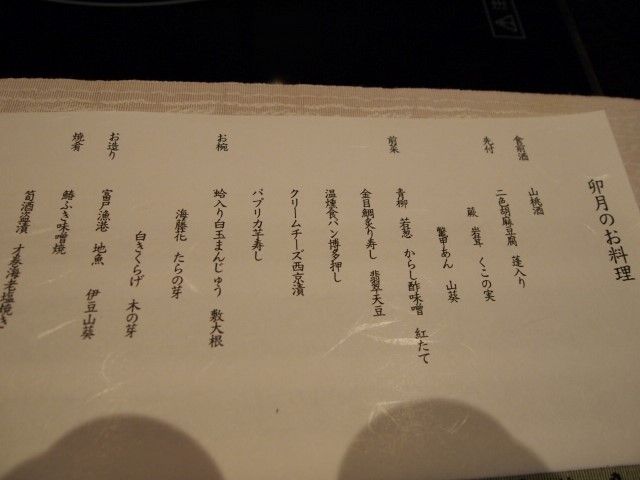 卯月のお料理
食前酒　山桃酒
先付　二色胡麻豆腐　蓬入り
蕨　岩茸　くこの実
鼈甲あん　山葵
前菜　青柳　若葱　からし酢味噌　紅たで
金目鯛炙り寿し　翡翠天豆
温燻食パン博多押し
クリームチーズ西京漬
パプリカ芋寿し
お椀　蛤入り白玉まんじゅう　敷大根
海藤花　たらの芽
白きくらげ　木の芽
お造り　富戸漁港　地魚　伊豆山葵
焼肴　鰆ふき味噌焼
筍酒盗漬　才巻海老塩焼き